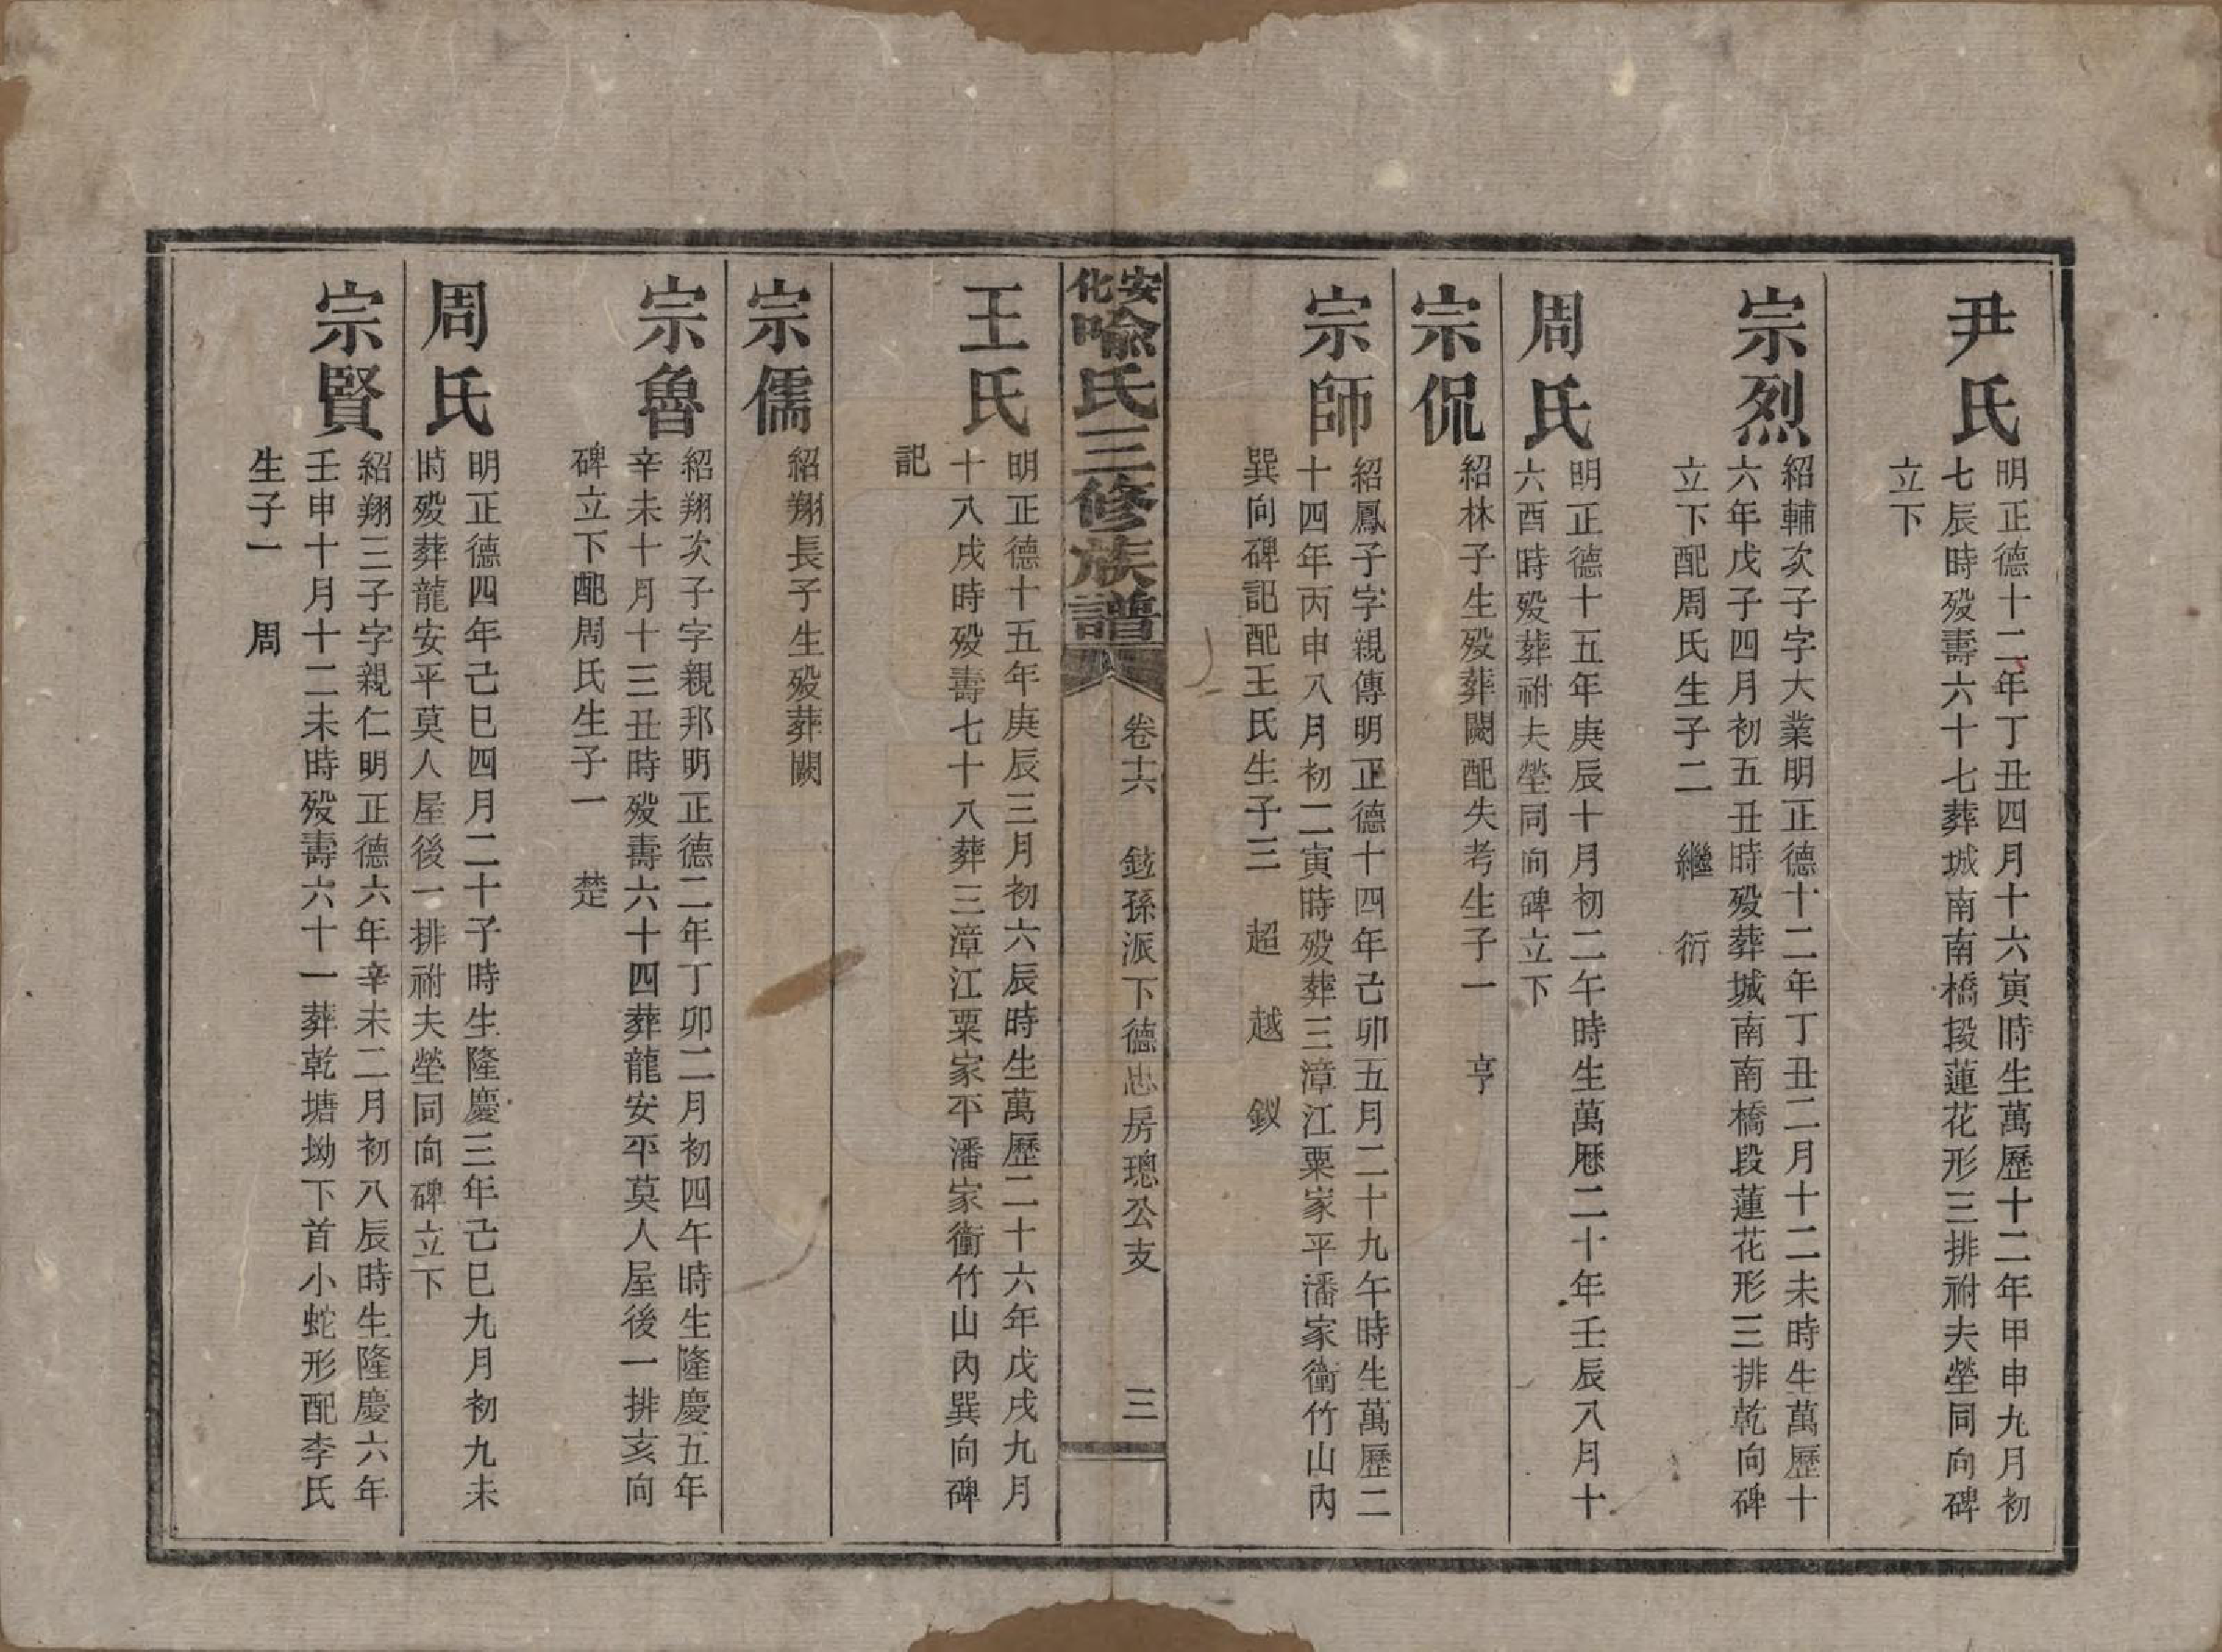 尹氏
明正德十二年丁丑四月十六寅時生萬歷十二年甲申九月初
七辰時殁壽六十七葬城南南橋段蓮花形三排祔夫塋同向碑
立下
宗烈
紹輔次子字大業明正德十二年丁丑二月十二未時生萬歷十
六年戊子四月初五丑時殁葬城南南橋段蓮花形三排乾向碑
立下配周氏生子二　繼　衍
周氏
明正德十五年庚辰十月初二午時生萬歷二十年壬辰八月十
六酉時殁葬祔夫塋同向碑立下
宗侃
紹林子生殁葬闕配失考生子一　亨
宗師
紹鳳子字親傳明正德十四年己卯五月二十九午時生萬歷二
十四年丙申八月初二寅時殁葬三漳江粟家平潘家衝竹山內
巽向碑記配王氏生子三　超　越　釵
安化喻氏三修族譜
卷十六　鉉孫派下德忠房璁公支　三
王氏
明正德十五年庚辰三月初六辰時生萬歷二十六年戊戌九月
十八戌時殁壽七十八葬三漳江粟家平潘家衝竹山內巽向碑
記
宗儒
紹翔長子生殁葬闕
宗魯
紹翔次子字親邦明正德二年丁卯二月初四午時生隆慶五年
辛未十月十三丑時殁壽六十四葬龍安平莫人屋後一排亥向
碑立下配周氏生子一　楚
周氏
明正德四年己巳四月二十子時生隆慶三年己巳九月初九未
時殁葬龍安平莫人屋後一排祔夫塋同向碑立下
宗賢
紹翔三子字親仁明正德六年辛未二月初八辰時生隆慶六年
壬申十月十二未時殁壽六十一葬乾塘坳下首小蛇形配李氏
生子一　周